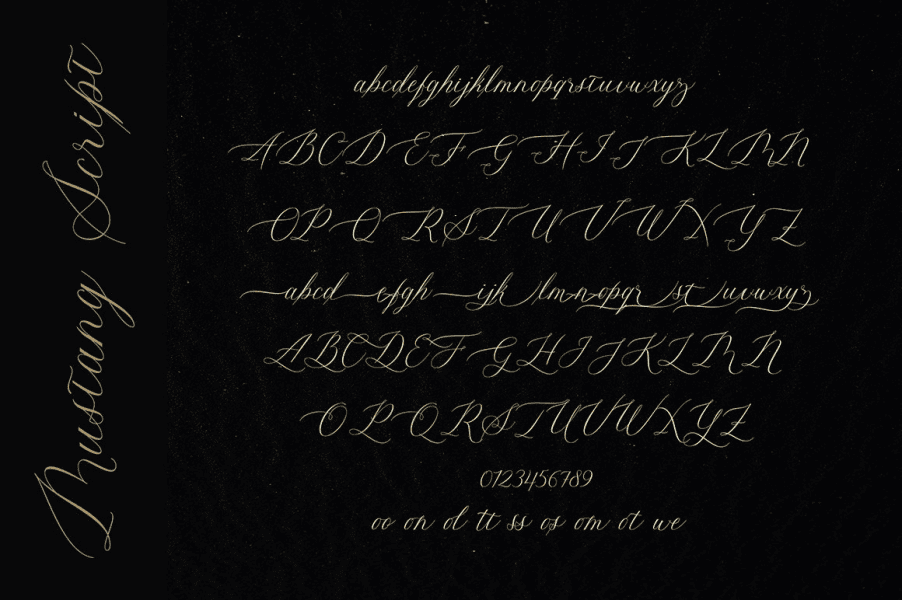 Mustang Script
abcdefghijklmnopqrstuvwxyz
ABCD EF G H I J KLMN
OP Q RST U V W X Y Z
abcd efgh ijk lmnopqr st uvwxyz
ABCDEF GHIJKLMN
O P QRSTUVWXYZ
0123456789
oo on ol tt ss os om ot we